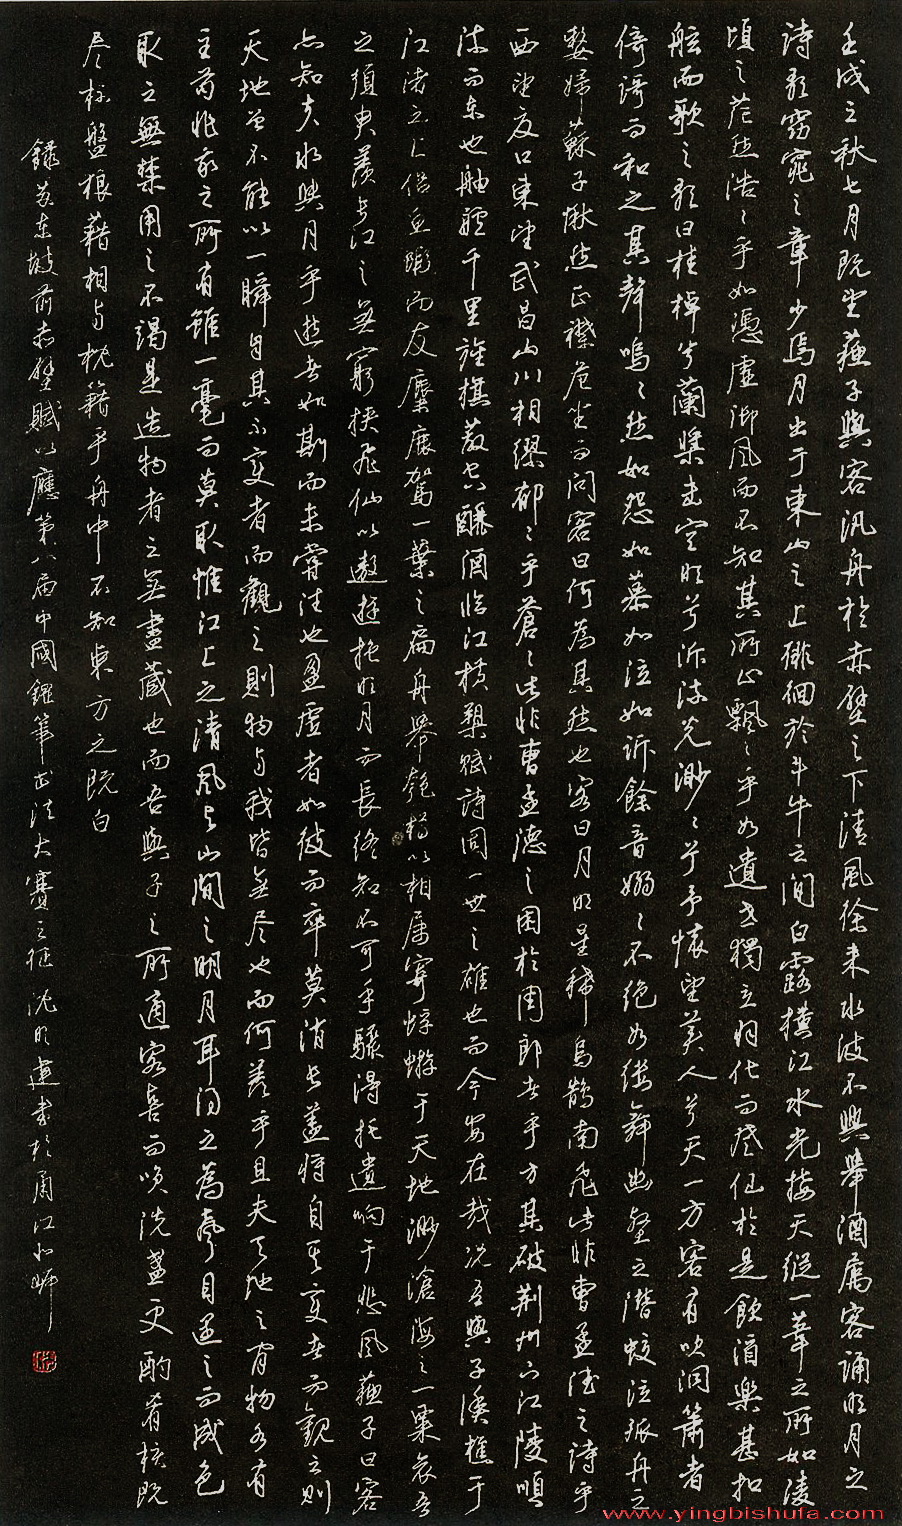 壬戌之秋七月既望蘇子與客汎舟於赤壁之下清風徐来水波不興舉酒属客誦明月之
詩歌窈窕之章少焉月出于東山之上徘徊於斗牛之間白露橫江水光接天縱一葦之所如陵
頃之茫然浩〻乎如憑虛御風而不知其所止飄〻乎如遺世獨立羽化而登仙於是飲酒樂甚扣
舷而歌之歌曰桂棹兮蘭槳击空明兮泝流光渺〻兮予懷望美人兮天一方客有吹洞簫者
倚謌而和之其聲嗚〻然如怨如慕如泣如訴餘音嫋〻不絕如縷舞幽壑之潛蛟泣孤舟之
嫠婦蘇子愀然正襟危坐而問客曰何為其然也客曰月明星稀烏鵲南飛此非曹孟德之詩乎
西望夏口東望武昌山川相繆郁〻乎蒼〻此非曹孟德之困於周郎者乎方其破荆州下江陵順
流而东也舳艫千里旌旗蔽空釃酒臨江橫槊賦詩固一世之雄也而今安在哉况吾與子漁樵于
江渚之上侣魚蝦而友麋鹿駕一葉之扁舟舉匏樽以相属寄蜉蝣于天地渺滄海之一粟哀吾
之須臾羨長江之無窮挾飛仙以遨遊抱明月而長終知不可乎驟得托遺响于悲風蘇子曰客
亦知夫水與月乎逝者如斯而未嘗往也盈虛者如彼而卒莫消長盖将自其变者而觀之則
天地曾不能以一瞬自其不变者而觀之則物与我皆無尽也而何羨乎且夫天地之间物各有
主苟非我之所有雖一毫而莫取惟江上之清風与山間之明月耳得之為聲目遇之而成色
取之無禁用之不竭是造物者之無盡藏也而吾與子之所適客喜而笑洗盞更酌肴核既
尽杯盤狼藉相与枕籍乎舟中不知東方之既白
錄苏東坡前赤壁賦以應第八届中國鋼筆书法大賽之征沈明建書於甬江北岸
www.yingbishufa.com